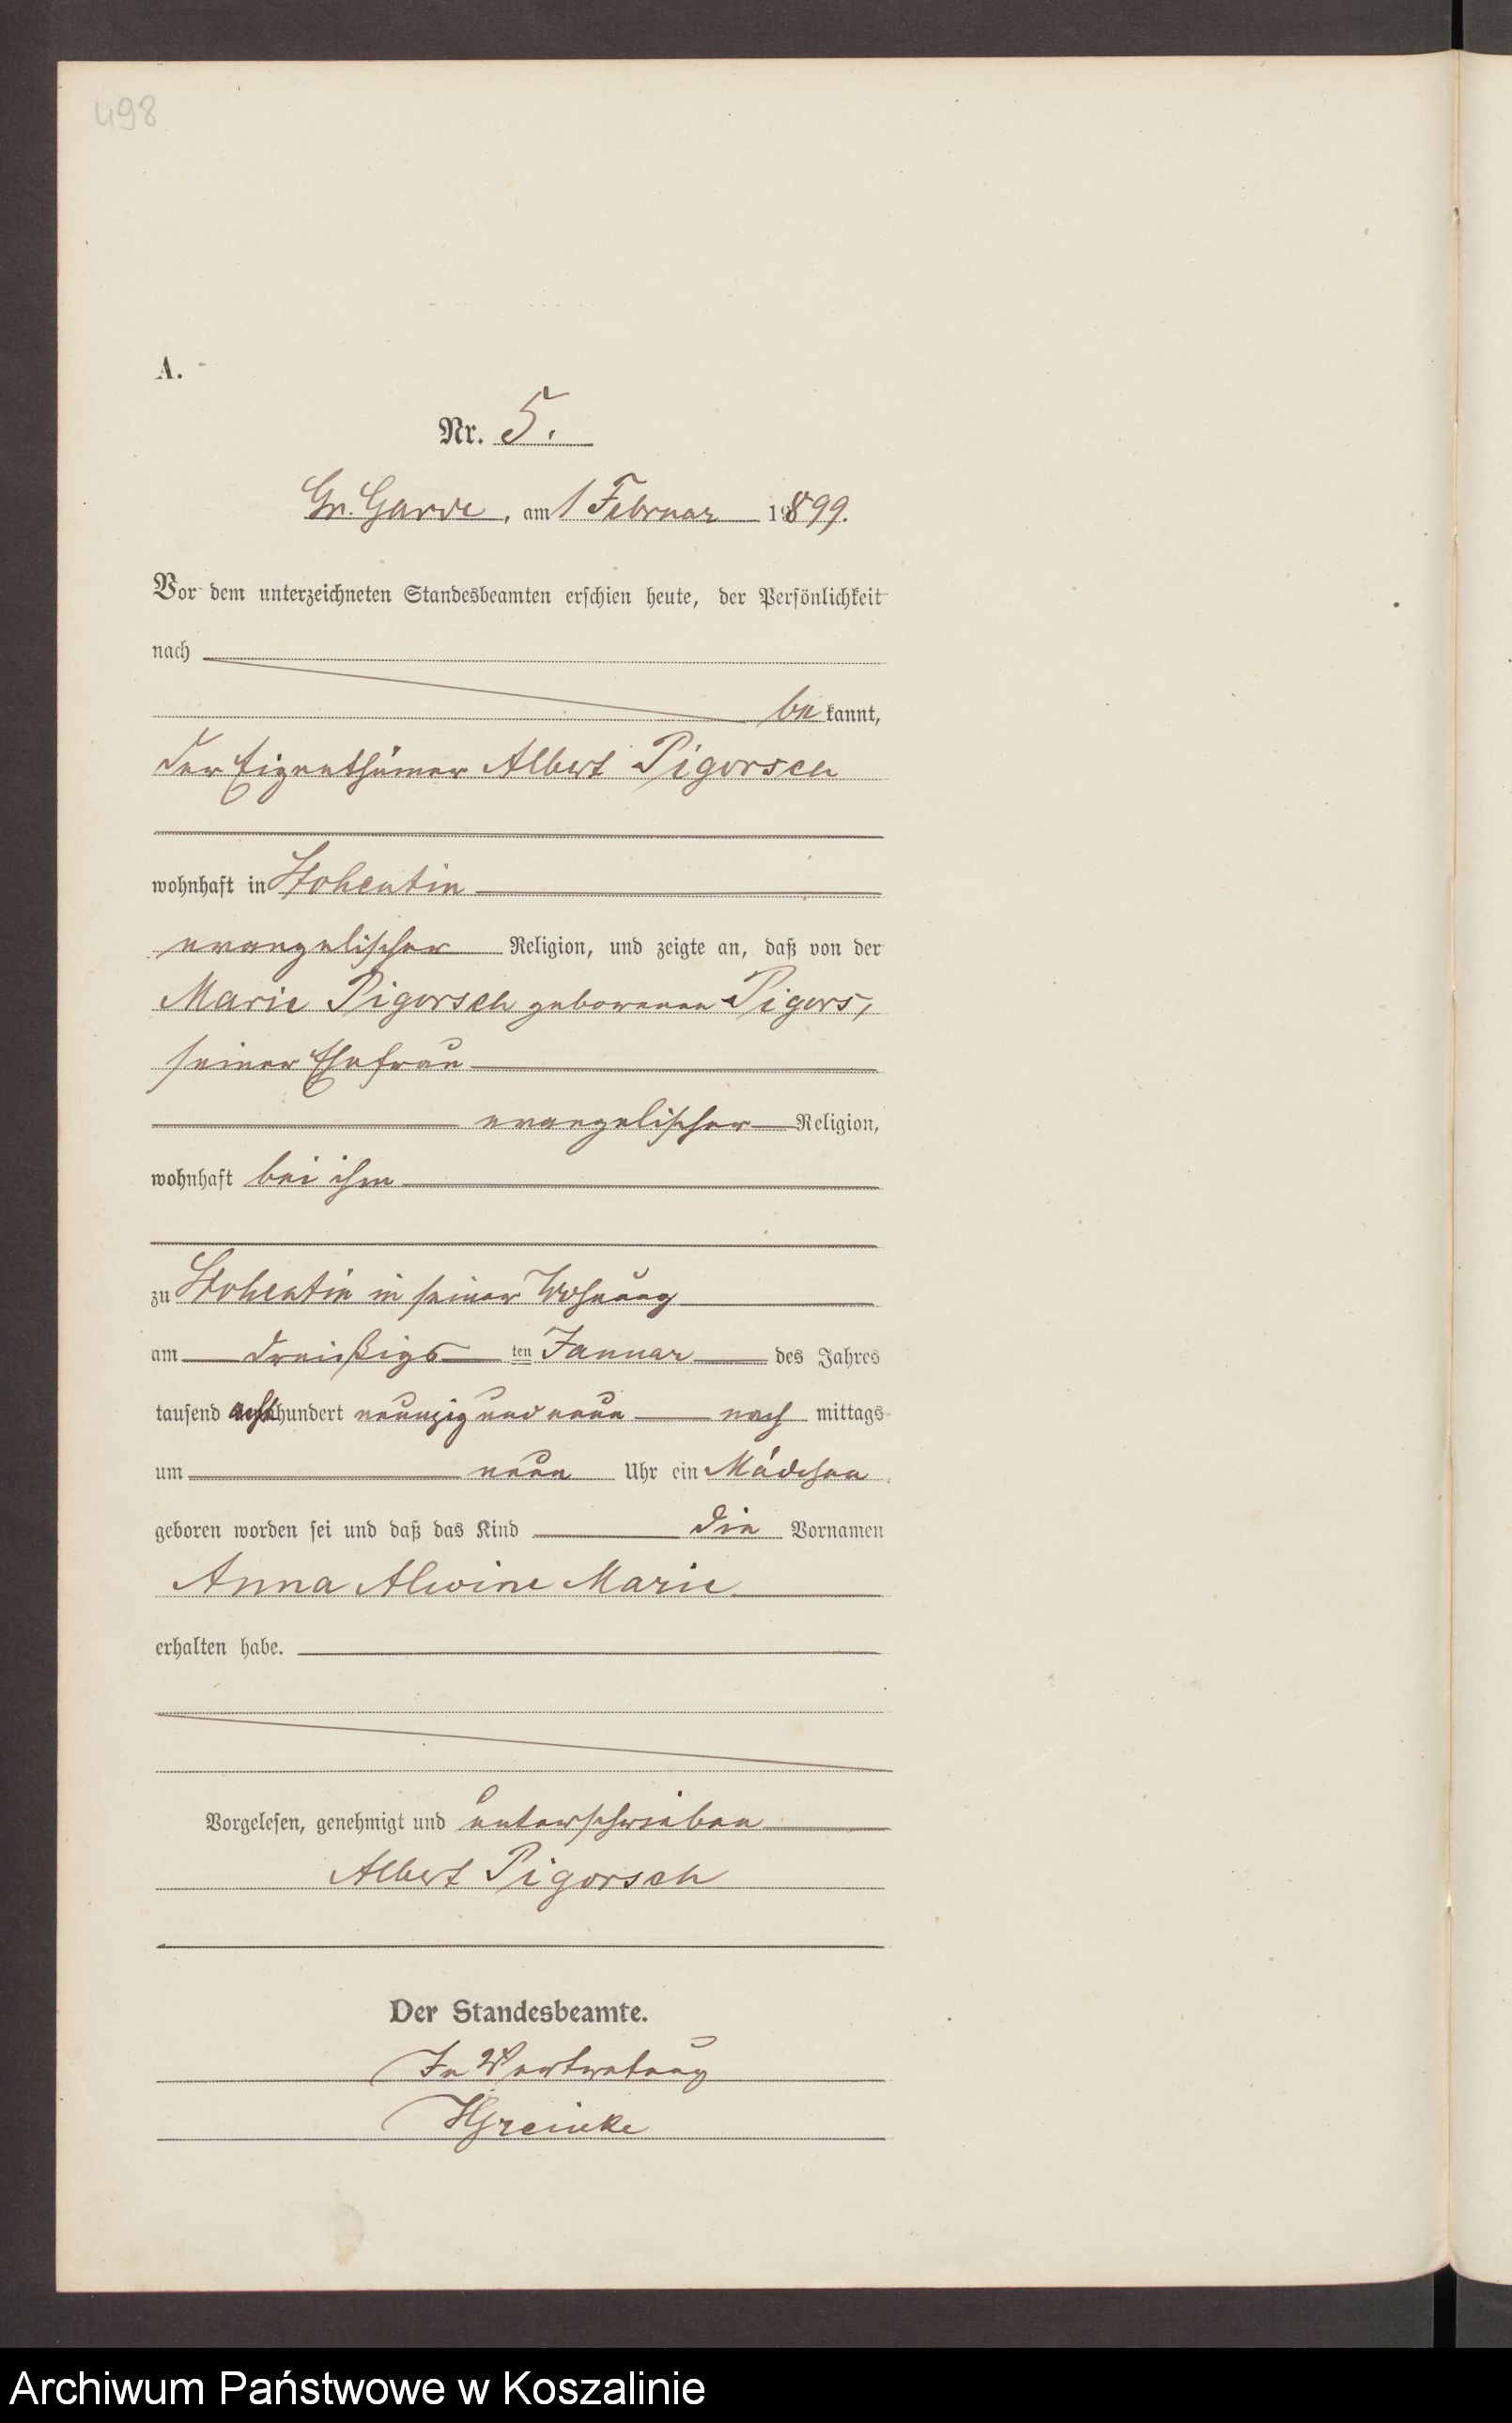 498
A.
Nr. 5.
Gr. Garde, am 1 Februar 1899.
Vor dem unterzeichneten Standesbeamten erschien heute, der Persönlichkeit
nach
be kannt,
der Eigenthümer Albert Pigorsch
wohnhaft in Hohentin
evangelischer Religion, und zeigte an, daß von der
Marie Pigorsch geborenen Pigors,
seiner Ehefrau
evangelischer Religion,
wohnhaft bei ihm
zu Hohentin in seiner Wohnung
am dreißigs ten Januar des Jahres
tausend achthundert neunzig und neun nach mittags
um neun Uhr ein Mädchen
geboren worden sei und daß das Kind die Vornamen
Anna Alwine Marie
erhalten habe.
Vorgelesen, genehmigt und unterschrieben
Albert Pigorsch
Der Standesbeamte.
In Vertretung
Archiwum Państwowe w Koszalinie